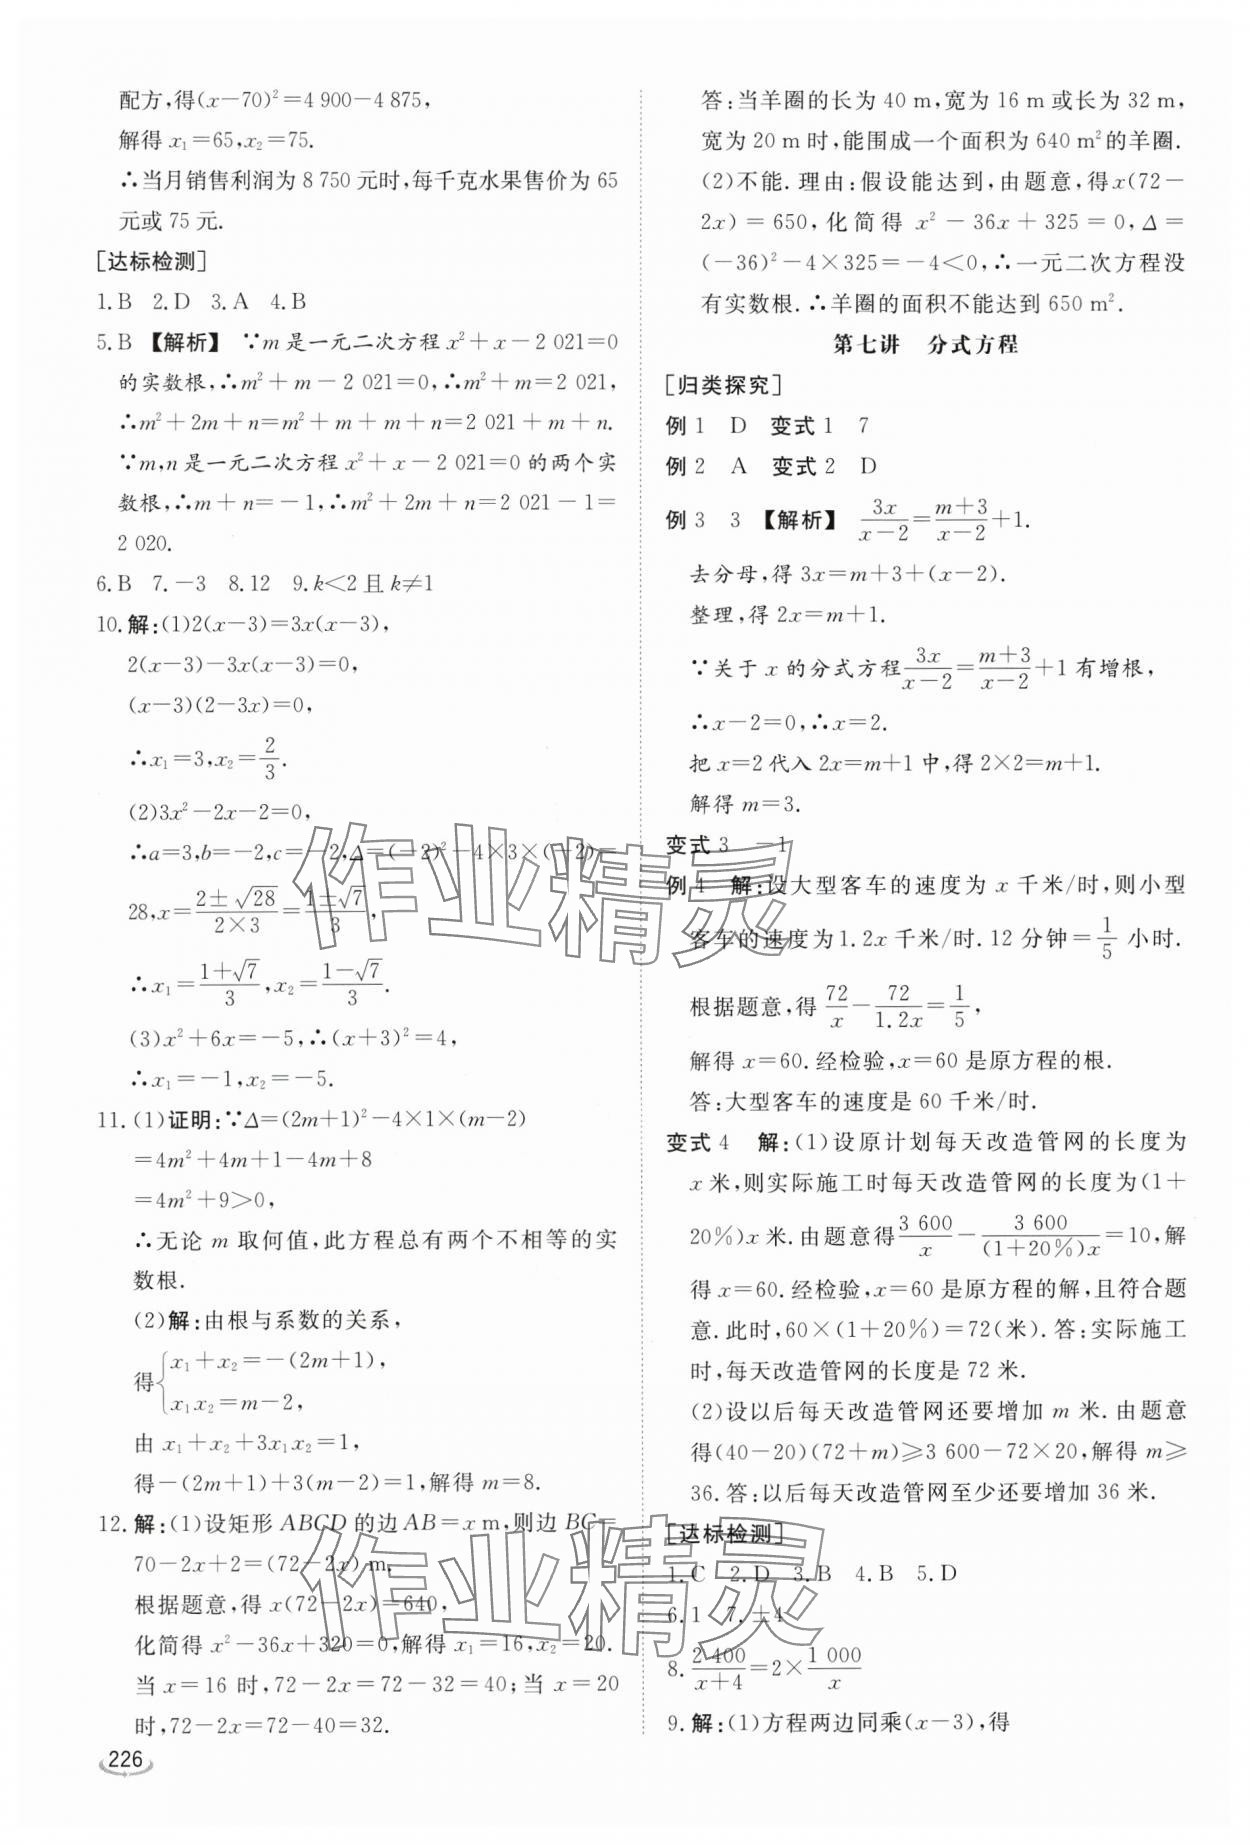 配方,得(x－70)²＝4 900－4 875,
解得 x₁＝65,x₂＝75.
∴当月销售利润为 8 750 元时,每千克水果售价为 65
元或 75 元.
[达标检测]
1.B 2.D 3.A 4.B
5.B 【解析】 ∵m 是一元二次方程 x²＋x－2 021＝0
的实数根,∴m²＋m－2 021＝0,∴m²＋m＝2 021,
∴m²＋2m＋n＝m²＋m＋m＋n＝2 021＋m＋n.
∵m,n 是一元二次方程 x²＋x－2 021＝0 的两个实
数根,∴m＋n＝－1,∴m²＋2m＋n＝2 021－1＝
2 020.
6.B 7.－3 8.12 9.k＜2 且 k≠1
10.解:(1)2(x－3)＝3x(x－3),
2(x－3)－3x(x－3)＝0,
(x－3)(2－3x)＝0,
∴x₁＝3,x₂＝2/3.
(2)3x²－2x－2＝0,
∴a＝3,b＝－2,c＝－2,Δ＝(－2)²－4×3×(－2)＝
28,x＝(2±√28)/(2×3)＝(1±√7)/3,
∴x₁＝(1＋√7)/3,x₂＝(1－√7)/3.
(3)x²＋6x＝－5,∴(x＋3)²＝4,
∴x₁＝－1,x₂＝－5.
11.(1)证明:∵Δ＝(2m＋1)²－4×1×(m－2)
＝4m²＋4m＋1－4m＋8
＝4m²＋9＞0,
∴无论 m 取何值,此方程总有两个不相等的实
数根.
(2)解:由根与系数的关系,
得{x₁＋x₂＝－(2m＋1),
x₁x₂＝m－2,
由 x₁＋x₂＋3x₁x₂＝1,
得－(2m＋1)＋3(m－2)＝1,解得 m＝8.
12.解:(1)设矩形 ABCD 的边 AB＝x m,则边 BC＝
70－2x＋2＝(72－2x) m.
根据题意,得 x(72－2x)＝640,
化简得 x²－36x＋320＝0,解得 x₁＝16,x₂＝20.
当 x＝16 时,72－2x＝72－32＝40;当 x＝20
时,72－2x＝72－40＝32.
226
答:当羊圈的长为 40 m,宽为 16 m 或长为 32 m,
宽为 20 m 时,能围成一个面积为 640 m²的羊圈.
(2)不能.理由:假设能达到,由题意,得x(72－
2x)＝650,化简得 x²－36x＋325＝0,Δ＝
(－36)²－4×325＝－4＜0,∴一元二次方程没
有实数根.∴羊圈的面积不能达到 650 m².
第七讲 分式方程
[归类探究]
例 1 D 变式 1 7
例 2 A 变式 2 D
例 3 3 【解析】 3x/(x－2)＝(m＋3)/(x－2)＋1.
去分母,得 3x＝m＋3＋(x－2).
整理,得 2x＝m＋1.
∵关于 x 的分式方程3x/(x－2)＝(m＋3)/(x－2)＋1 有增根,
∴x－2＝0,∴x＝2.
把 x＝2 代入 2x＝m＋1 中,得 2×2＝m＋1.
解得 m＝3.
变式 3 －1
例 4 解:设大型客车的速度为 x 千米/时,则小型
客车的速度为1.2x千米/时.12 分钟＝1/5 小时.
根据题意,得 72/x－72/1.2x＝1/5,
解得 x＝60.经检验,x＝60 是原方程的根.
答:大型客车的速度是 60 千米/时.
变式 4 解:(1)设原计划每天改造管网的长度为
x 米,则实际施工时每天改造管网的长度为(1＋
20%)x 米.由题意得3 600/x－3 600/(1＋20%)x＝10,解
得 x＝60.经检验,x＝60 是原方程的解,且符合题
意.此时,60×(1＋20%)＝72(米).答:实际施工
时,每天改造管网的长度是 72 米.
(2)设以后每天改造管网还要增加 m 米.由题意
得(40－20)(72＋m)≥3 600－72×20,解得 m≥
36.答:以后每天改造管网至少还要增加 36 米.
[达标检测]
1.C 2.D 3.B 4.B 5.D
6.1 7.±4
8.2 400/(x＋4)＝2×1 000/x
9.解:(1)方程两边同乘(x－3),得
作业精灵
作业精灵